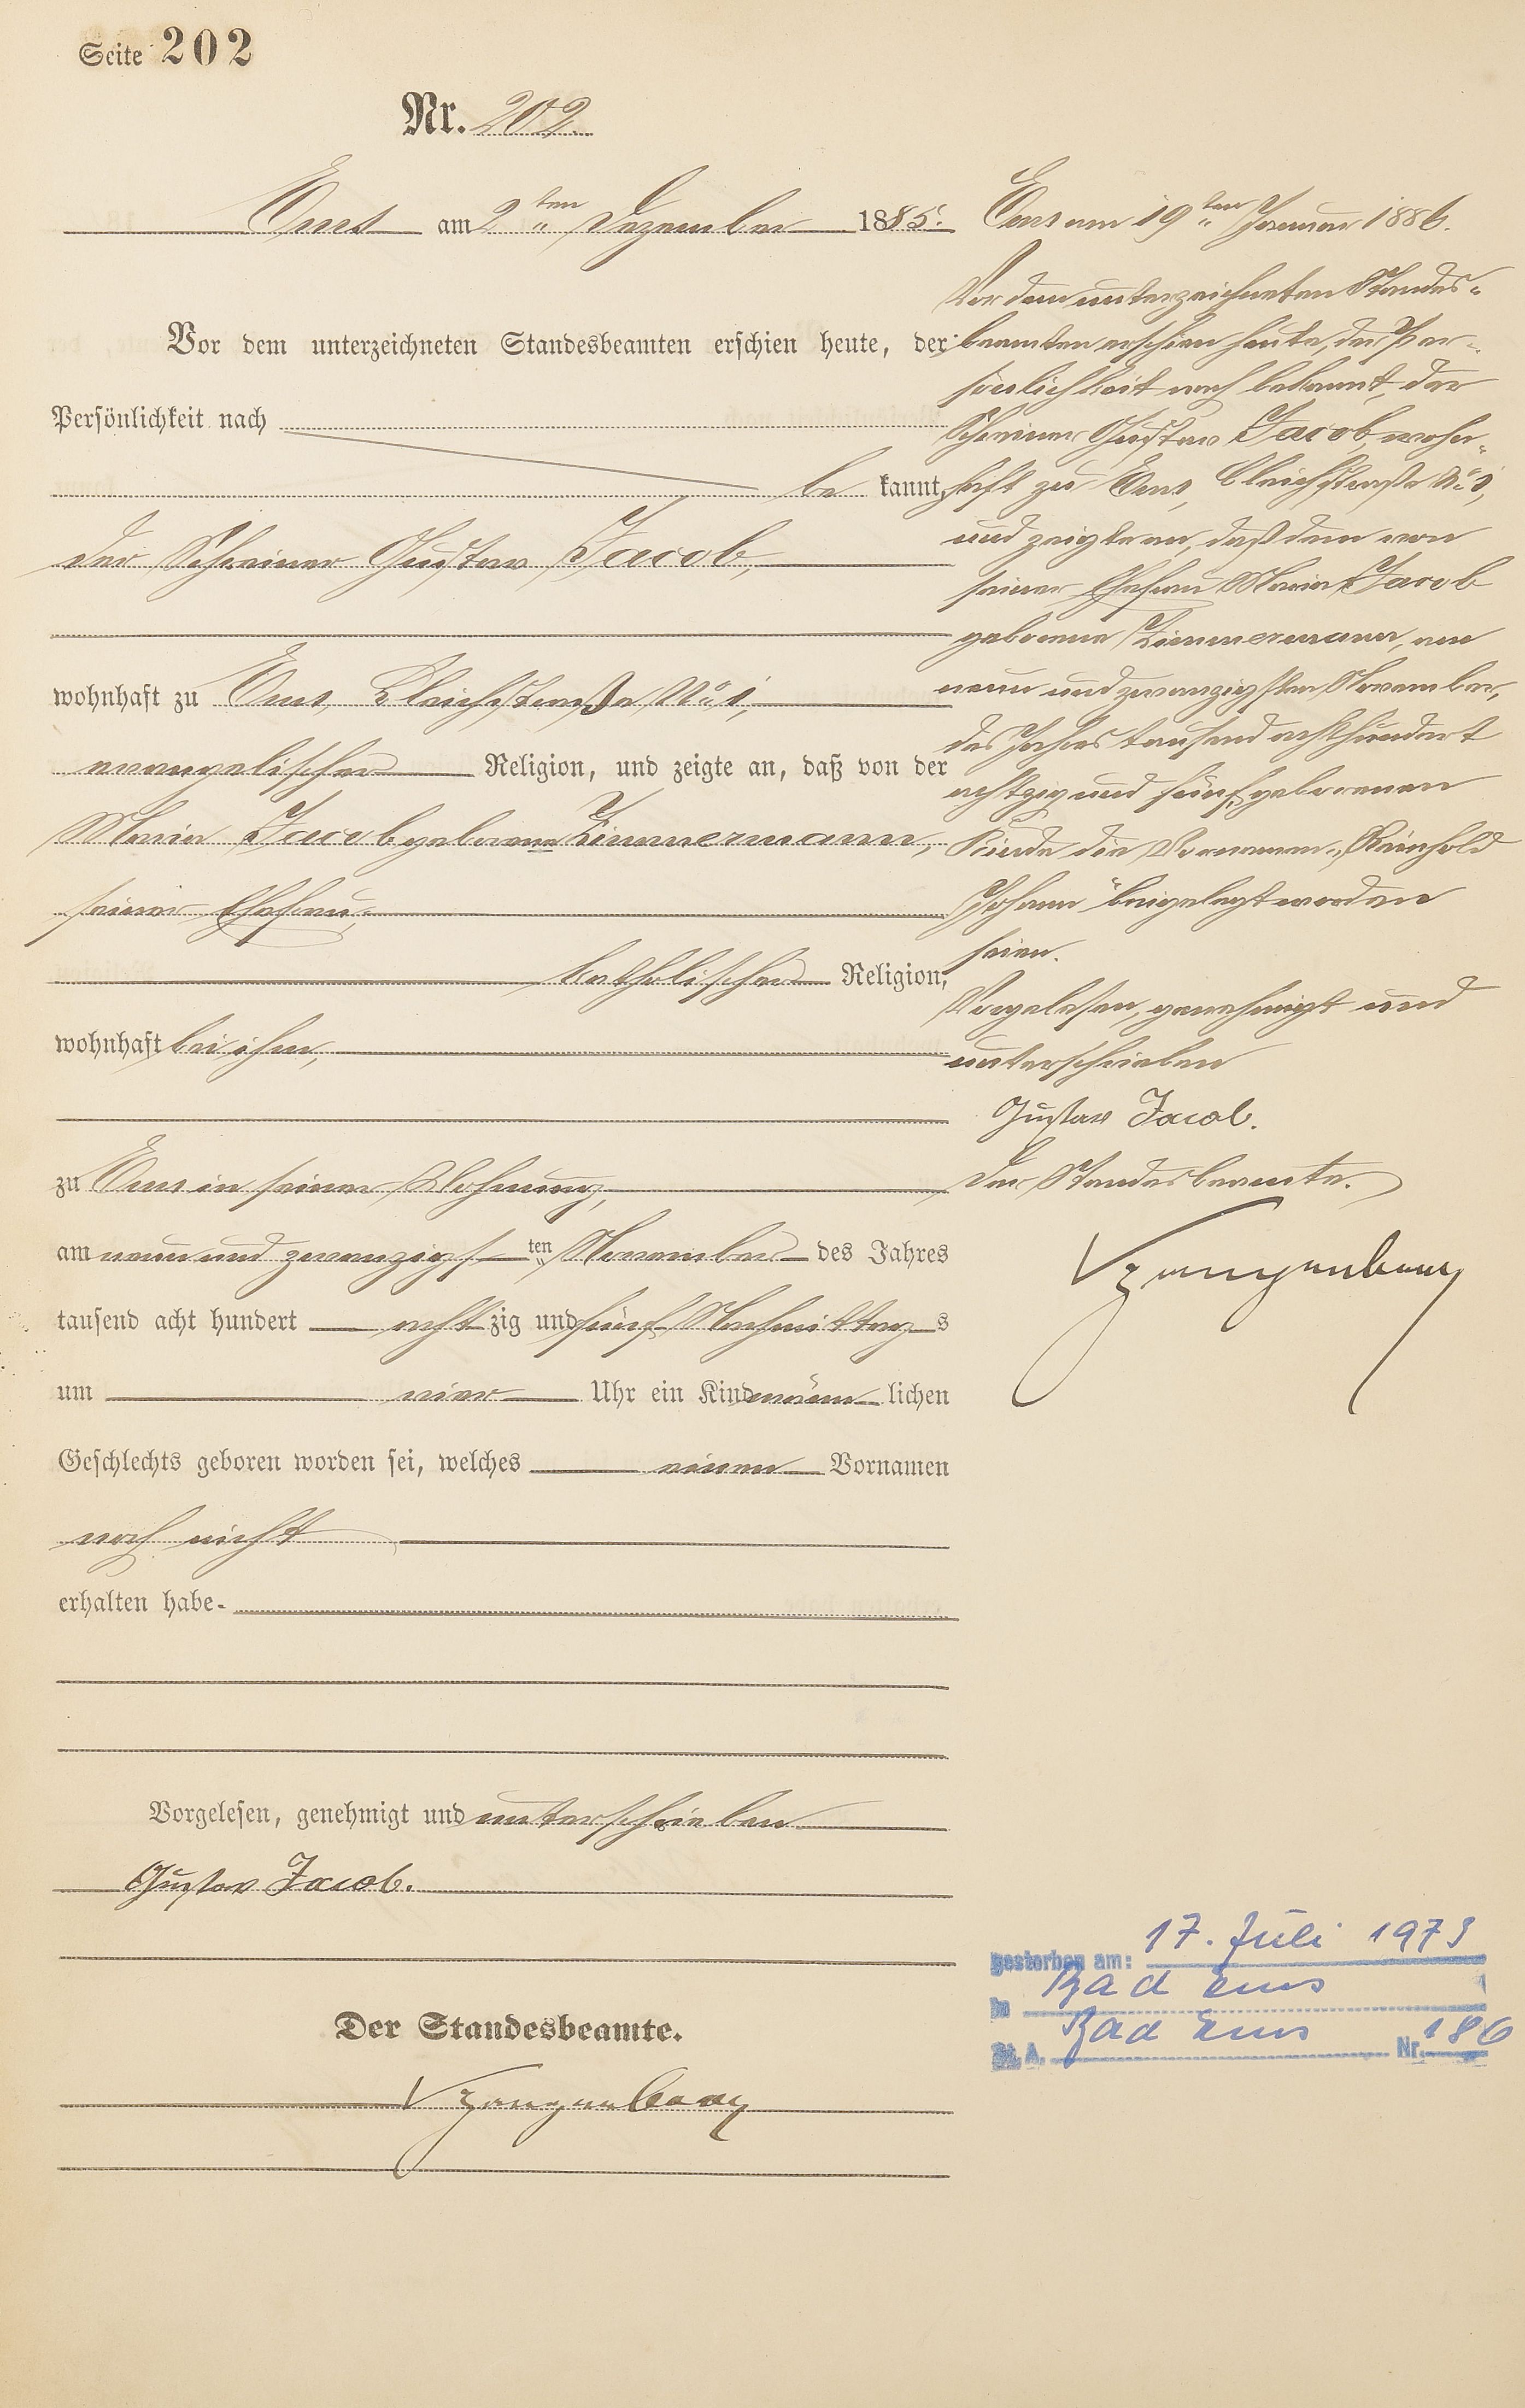 Seite 202
Nr. 202.
Ems am 2ten Dezember 1885.
Vor dem unterzeichneten Standesbeamten erschien heute, der
Persönlichkeit nach
be kannt,
der Schreiner Gustav Jacob,
wohnhaft zu Ems, Bleichstraße No 1,
evangelischer Religion, und zeigte an, daß von der
Maria Jacob geborene Zimmermann,
seiner Ehefrau,
katholischer Religion,
wohnhaft bei ihm,
zu Ems in seiner Wohnung,
am neun und zwanzigsten November des Jahres
tausend acht hundert achtzig und fünf Nachmittags
um vier Uhr ein Kind männlichen
Geschlechts geboren worden sei, welches einen Vornamen
noch nicht
erhalten habe.
Vorgelesen, genehmigt und unterschrieben
Gustav Jacob.
Der Standesbeamte.
Ems am 19ten Januar 1886.
Vor dem unterzeichneten Standes-
beamten erschien heute, der Per-
sönlichkeit nach bekannt, der
Schreiner Gustav Jacob, wohn-
haft zu Ems, Bleichstraße No 1,
und zeigte an, daß dem von
seiner Ehefrau Maria Jacob
geborene Zimmermann, am
neun und zwanzigsten November,
des Jahres tausend achthundert
achtzig und fünf, geborenen
Kinde die Vornamen „Reinhold
Johann“ beigelegt worden
seien.
Vorgelesen, genehmigt und
unterschrieben
Gustav Jacob.
Der Standesbeamte.
gestorben am: 17. Juli 1973
in Bad Ems
St. A. Bad Ems Nr. 186